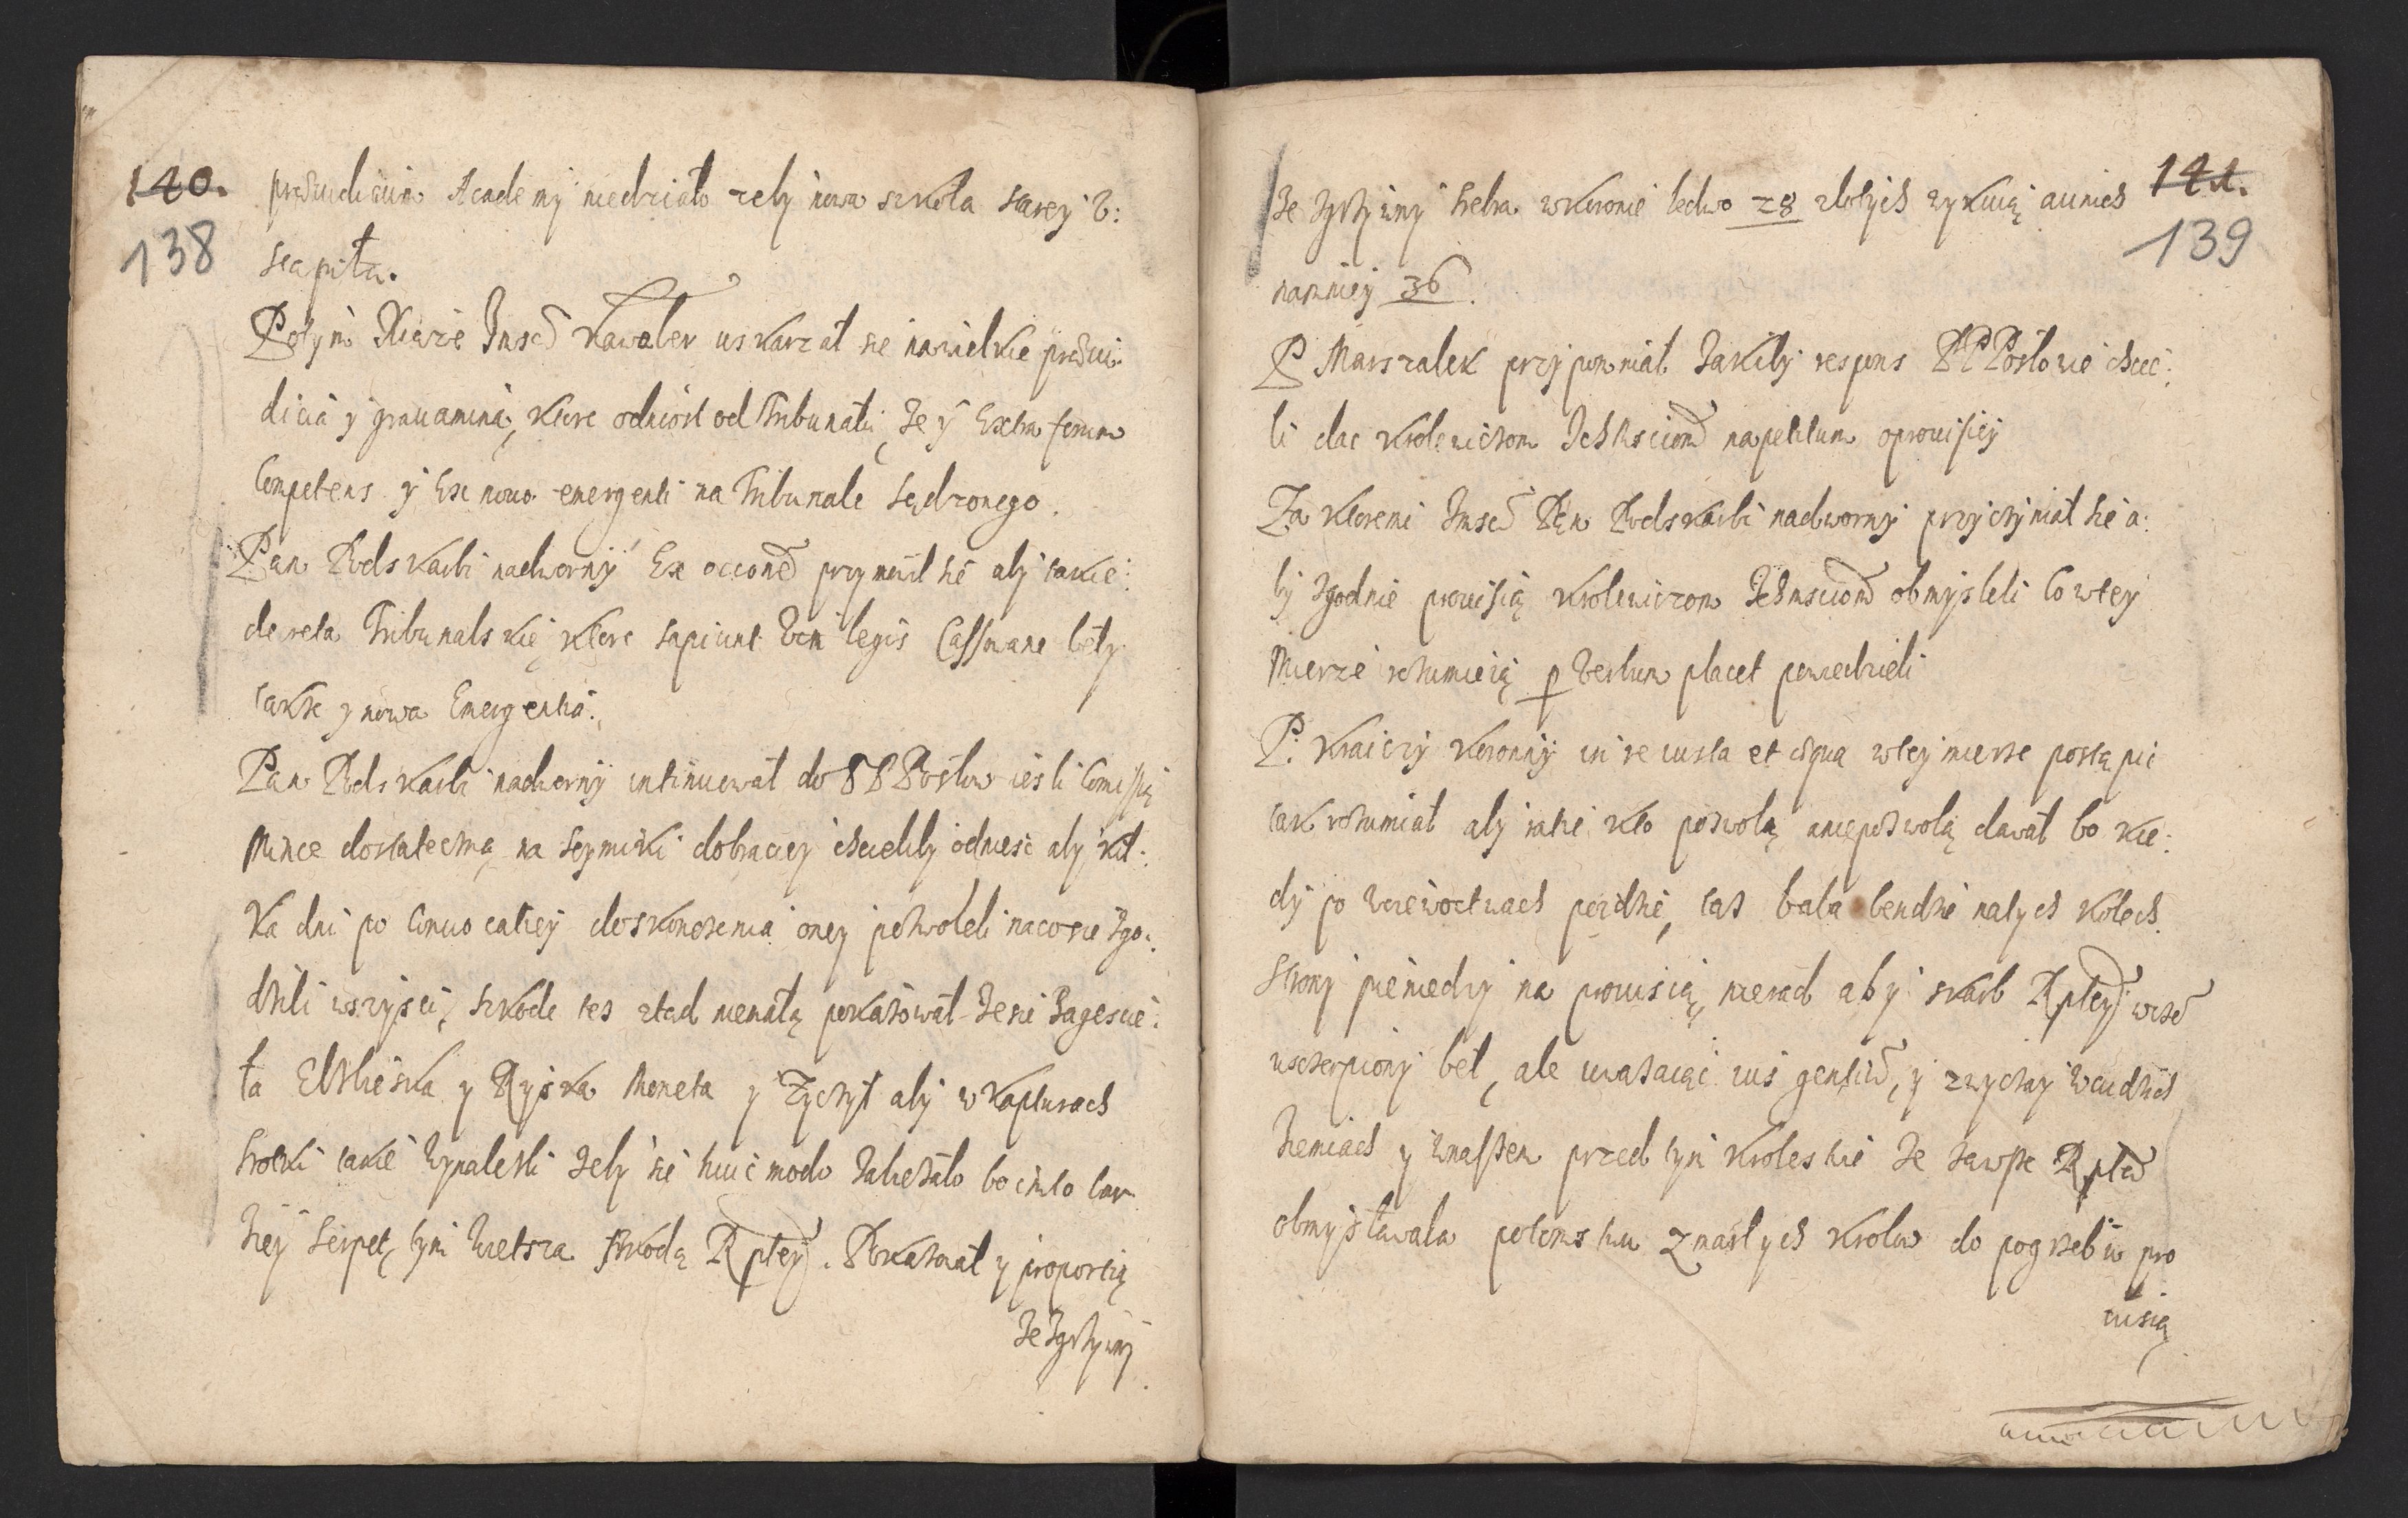 140.
138
præiudicium Academij niedziało zeby nowa szkoła starey v:
scapiła.
Potym Xiąże Jmsć Kawaler uskarzał sie na wielkie præiui-
dicia y grauamina, ktore odniosł od Tribunału, że y Extra forum
Competens y Ex nouo emergenti na Tribunale sądzonego.
Pan Podskarbi nadworny Ex occone przymowił sie aby takie
decreta Tribunalskie ktore sapiunt vim legis Cassowane beły
także y nowa Emergentia.
Pan Podskarbi nadworny intinuował do PP Posłow iesli Comissią
Mince dostateczną na Seymiki do braciey chcieliby odniesc aby kil:
ka dni po Conuocatiey do skonczenia oney pozwoleli na co sie zgo:
dzili wszyscy, szkode tes ztad niemałą pokazował ze sie zagescie:
ła Elblieska y Ryska Moneta y Zyczył aby w Kapturach
srotki takie wynalezli zeby sie huic modo zabiezało bo im to bar
ziey serpet, tym wietsza szkodą Rptey. Pokazował y proporcią
Ze Zgrzywny
141.
139
Ze Zgrzywny srebra w Koronie ledwo 28 złotych wykuią a u nich
namniey 36.
P Marszałek przypomniał Jakiby respons PP Posłowie chcie:
li dac Krolewiczom Ichmsciom na petitum o prouisiey
Za ktoremi Jmsć Pan Podskarbi nadworny przyczyniał sie a:
by zgodnie prouisią Krolewiczom Ichmsciom obmysleli Co w tey
Mierze rozumieią p Verbum placet powiedzieli
P. Kraiczy Koronny in re iusta et æqua w tey mierze postąpic
tak rozumiał aby iakie kto pozwolą a nie pozwolą dawał bo kie:
dy po Woiewoctwach poidzie, tas bała bendzie na tych Kołech.
Strony pieniedzy na prouisią, nierad aby skarb Rptey wczem
uscierpiony beł, ale uwazaiąc ius gentium, y zwyczay w cudzich
Ziemiach y w naszem przed tym Krolestwie Ze zawsze Rpta
obmysławała potomstwu zmarłych Krolow do pogrzebu pro
uisią